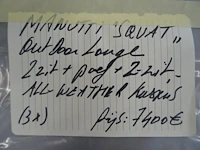 MANUTTI "SQUAT"
Outdoor Lounge
2zit + poef + 2-zit
ALL WEATHER Kussens
(3x) Prijs: 7400€